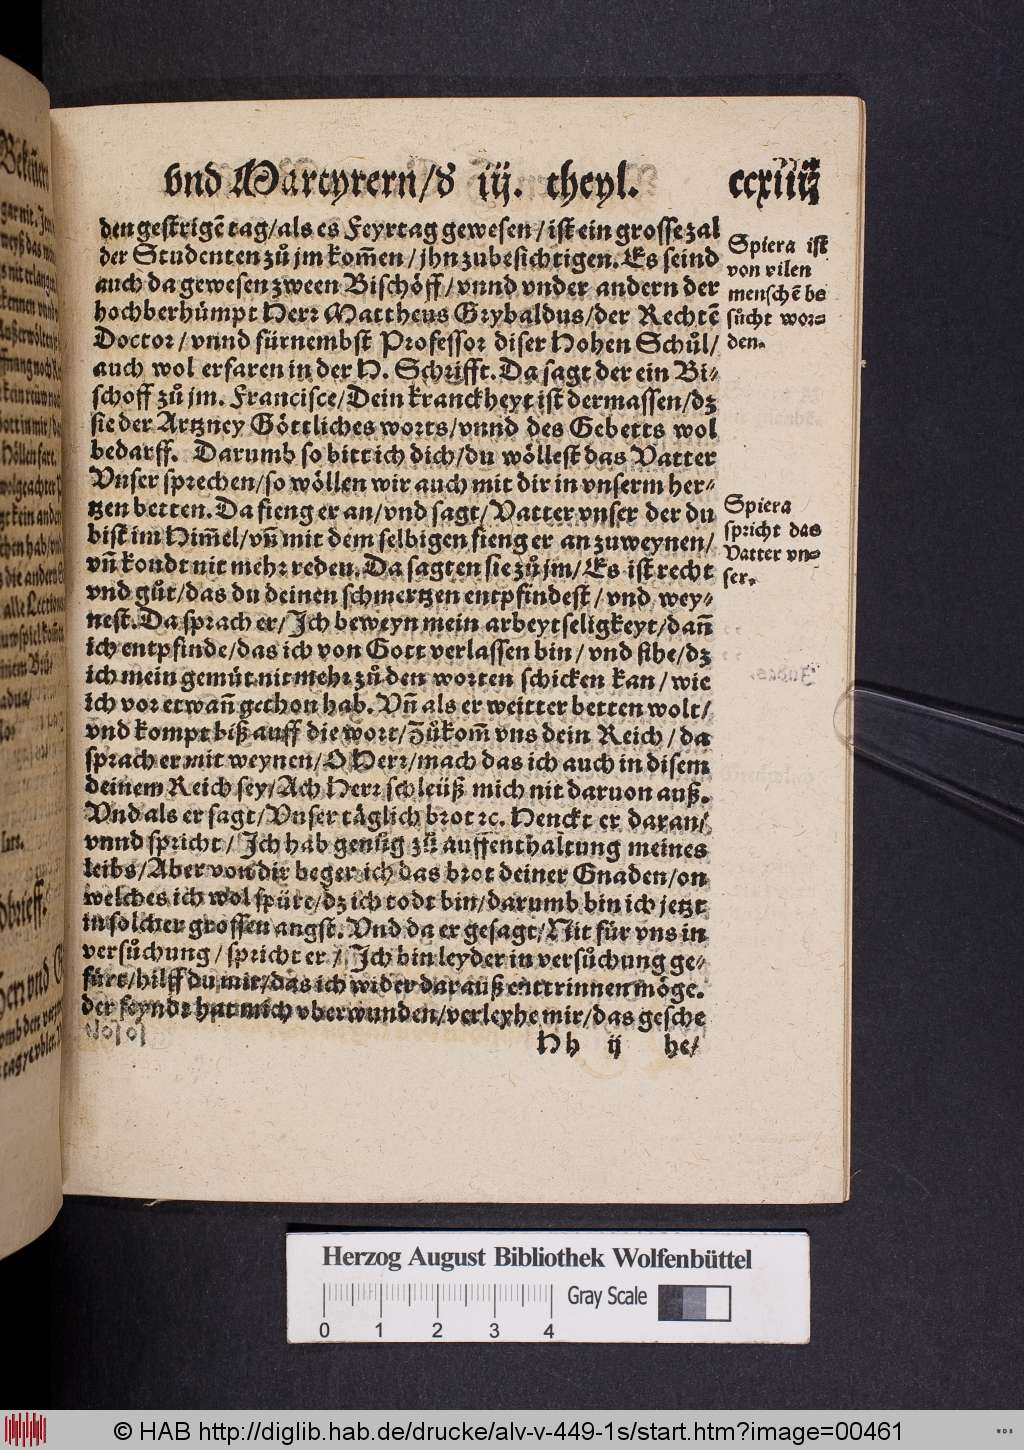 vnd Martyrern/d̕ iij. theyl. ccxiiij
den gestrigẽ tag/als es Feyrtag gewesen/ist ein grosse zal
der Studenten zů jm kom̃en/jhn zubesichtigen. Es seind
auch da gewesen zween Bischöff/vnnd vnder andern der
hochberhümpt Herr Mattheus Grybaldus/der Rechtẽ
Doctor/vnnd fürnembst Professor diser Hohen Schůl/
auch wol erfaren in der H. Schrifft. Da sagt der ein Bi-
schoff zů jm. Francisce/Dein kranckheyt ist dermassen/dz
sie der Artzney Göttliches worts/vnnd des Gebetts wol
bedarff. Darumb so bitt ich dich/du wöllest das Vatter
Vnser sprechen/so wöllen wir auch mit dir in vnserm her-
tzen betten. Da fieng er an/vnd sagt/Vatter vnser der du
bist im Him̃el/vñ mit dem selbigen fieng er an zuweynen/
vñ kondt nit mehr reden. Da sagten sie zů jm/Es ist recht
vnd gůt/das du deinen schmertzen entpfindest/vnd wey-
nest. Da sprach er/Ich beweyn mein arbeytseligkeyt/dañ
ich entpfinde/das ich von Gott verlassen bin/vnd sihe/dz
ich mein gemüt nit mehr zů den worten schicken kan/wie
ich vor etwañ gethon hab. Vñ als er weitter betten wolt/
vnd kompt biß auff die wort/Zůkom̃ vns dein Reich/da
sprach er mit weynen/O Herr/mach das ich auch in disem
deinem Reich sey/Ach Herr schleüß mich nit daruon auß.
Vnd als er sagt/Vnser täglich brot ꝛc. Henckt er daran/
vnnd spricht/Ich hab genůg zů auffenthaltung meines
leibs/Aber von dir beger ich das brot deiner Gnaden/on
welches ich wol spüre/dz ich todt bin/darumb bin ich jetzt
in solcher grossen angst. Vnd da er gesagt/Nit für vns in
versůchung/spricht er/Ich bin leyder in versůchung ge-
fürt/hilff du mir/das ich wider darauß enttrinnen möge.
der feyndt hat mich vberwunden/verleyhe mir/das gesche
Hh ij he/
Spiera ist
von vilen
menschẽ be
sůcht wor-
den.
Spiera
spricht das
Vatter vn-
ser.
Herzog August Bibliothek Wolfenbüttel
Gray Scale
0 1 2 3 4
© HAB http://diglib.hab.de/drucke/alv-v-449-1s/start.htm?image=00461